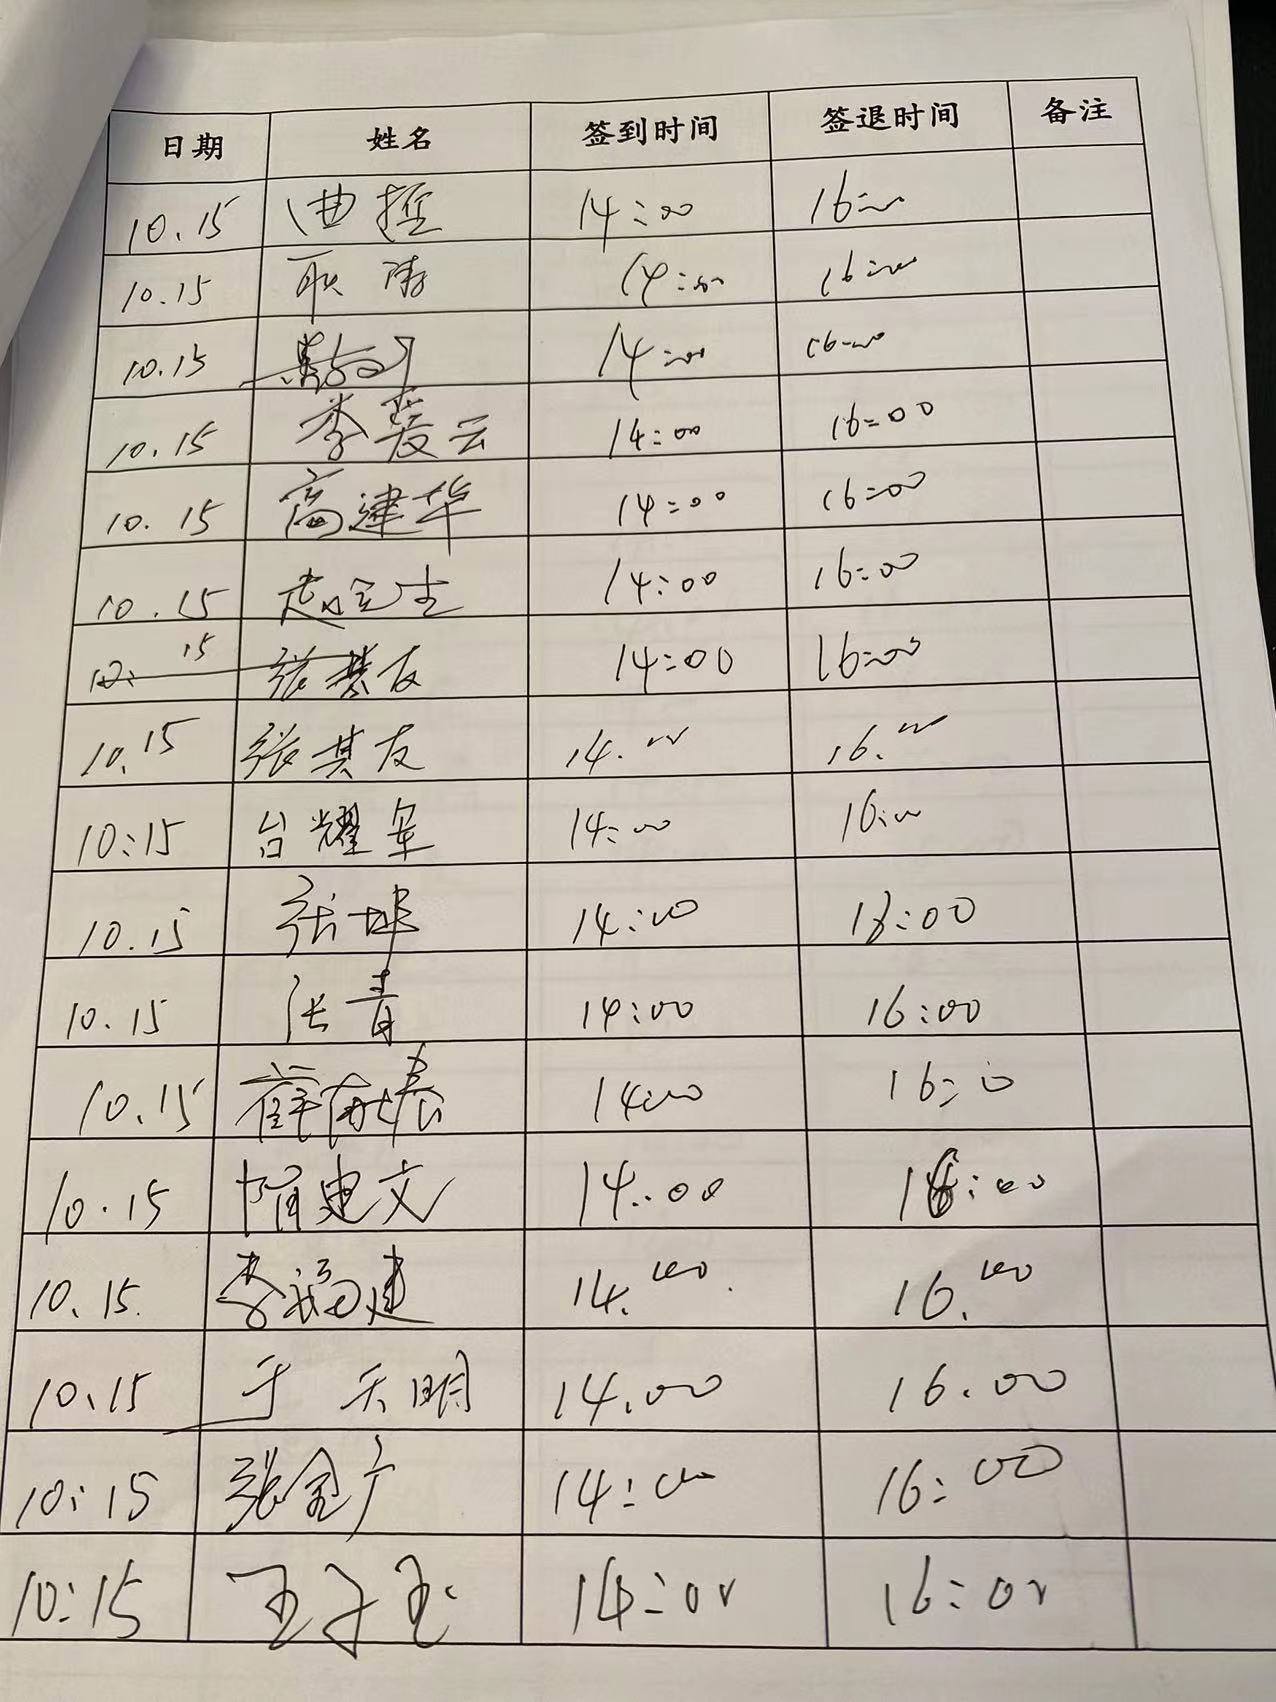 日期 姓名 签到时间 签退时间 备注
10.15 曲 14:00 16:00
10.15 耿涛 14:00 16:00
10.15 14:00 16:00
10.15 李爱云 14:00 16:00
10.15 高建华 14:00 16:00
10.15 赵宝生 14:00 16:00
10: 15 张其友 14:00 16:00
10.15 张其友 14.00 16.00
10:15 台耀军 14:00 16:00
10.15 张坤 14:00 16:00
10.15 张青 14:00 16:00
10.15 薛春 14:00 16:00
10.15 隋建文 14:00 16:00
10.15. 李福建 14.00. 16.00
10.15 于天明 14.00 16.00
10:15 张金广 14:00 16:00
10:15 王子玉 14:00 16:00